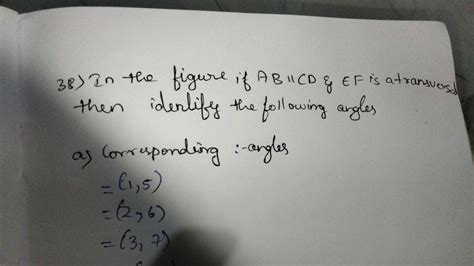 38) In the figure, if AB || CD & EF is a transversal
then identify the following angles
a) corresponding :- angles
= (1, 5)
= (2, 6)
= (3, 7)